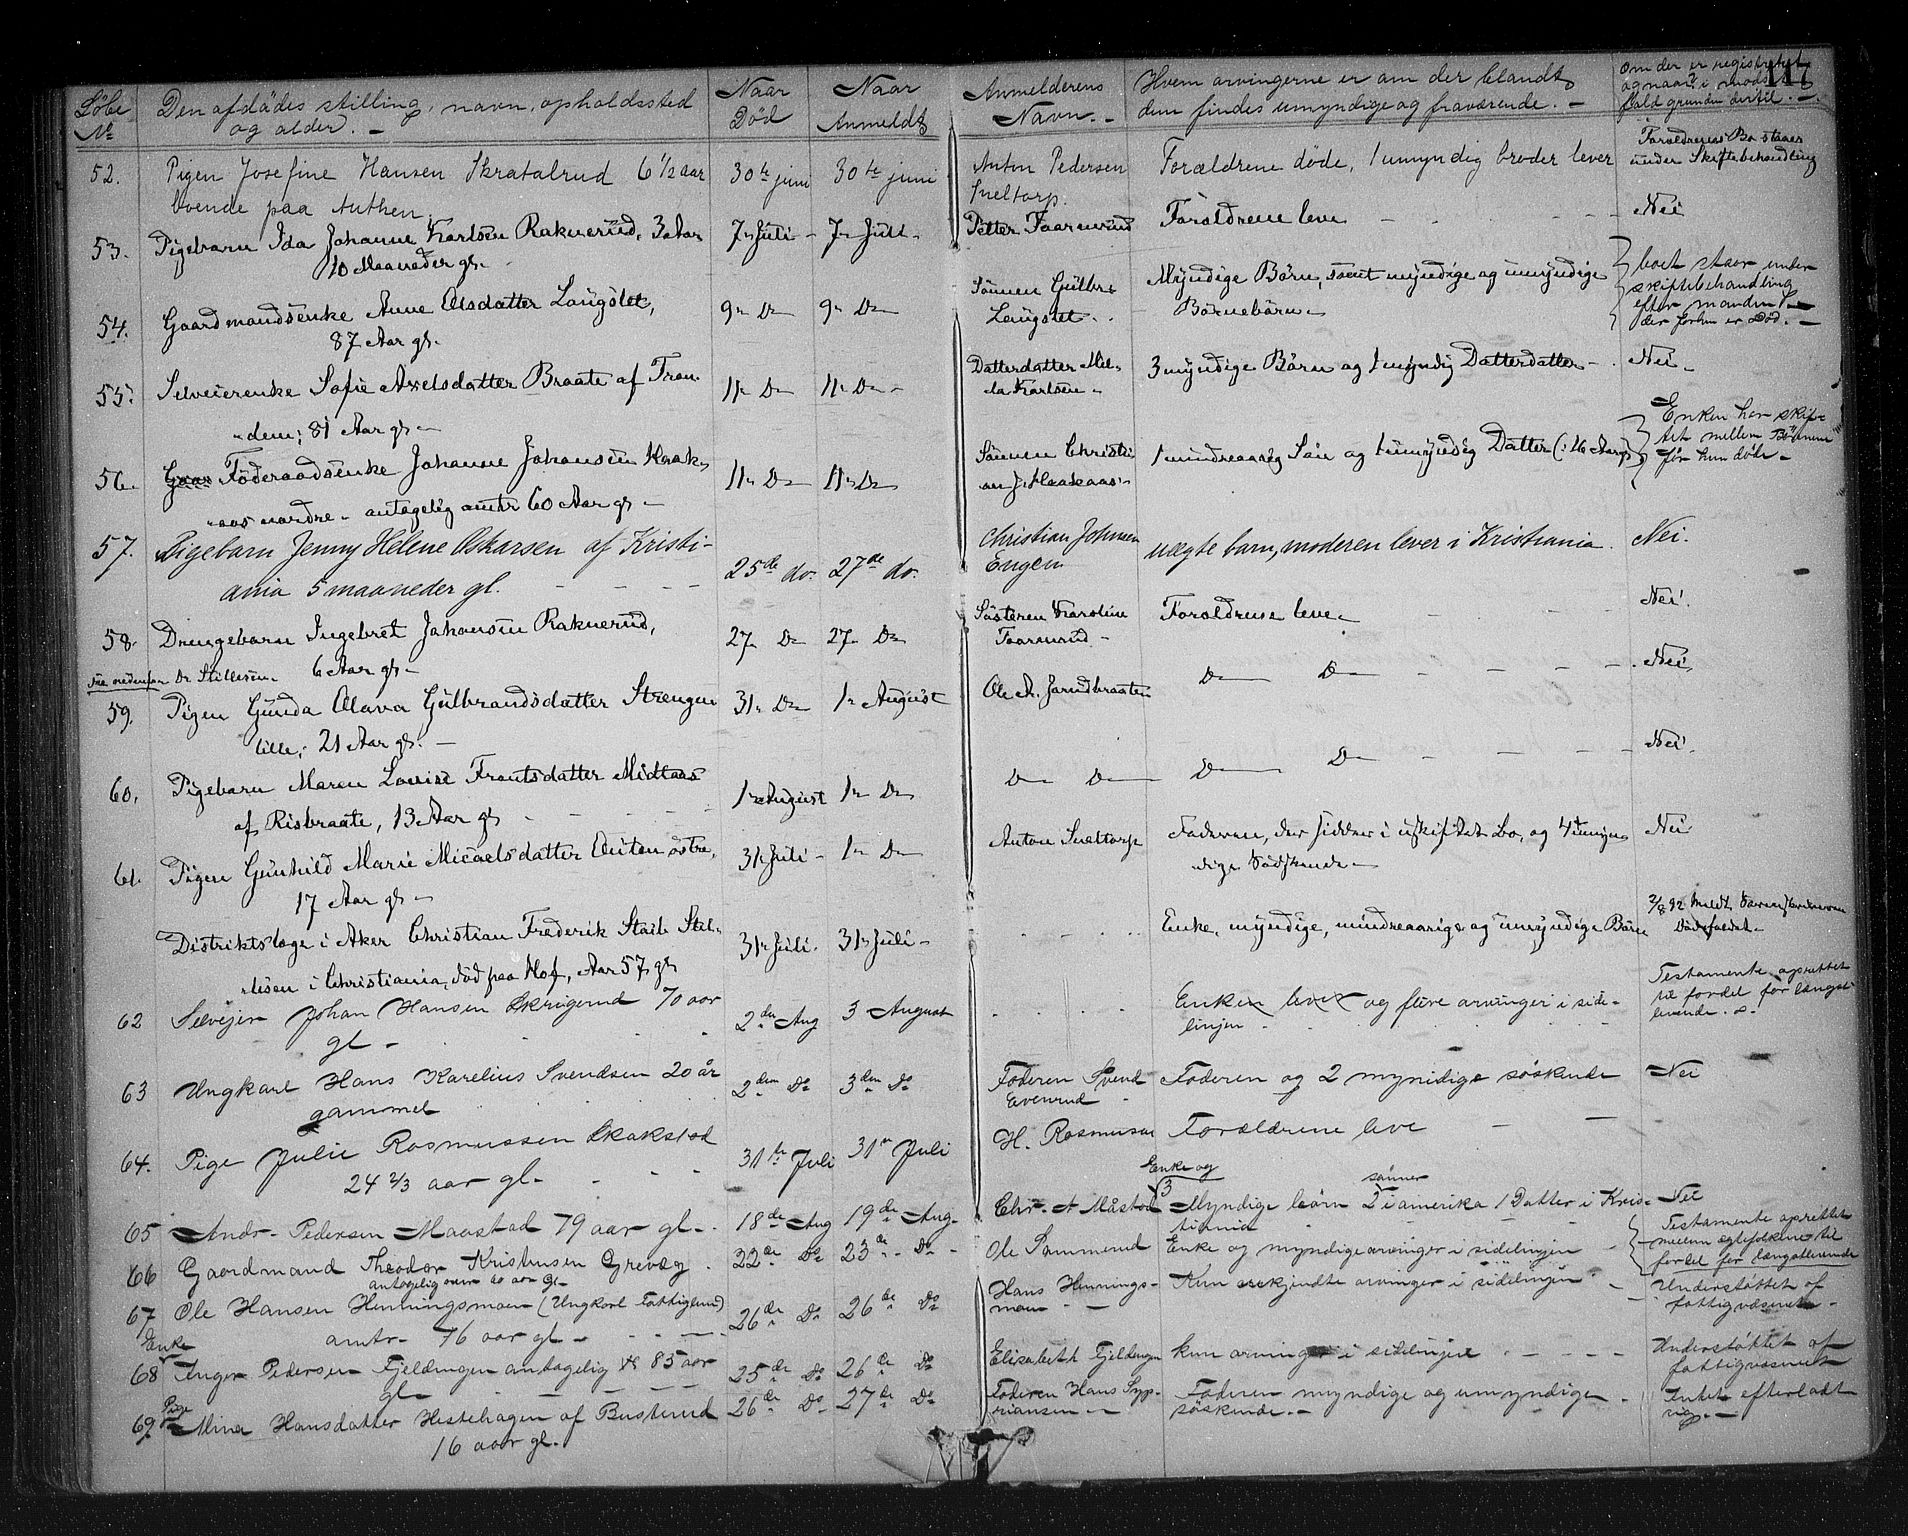 Løbe No
Den afdødes stilling, navn, opholdssted
og alder. —
Naar Død
Naar Anmeldt
Anmelderens Navn. —
Hvem arvingerne er om der blandt
dem findes umyndige og fraværende. —
Om der er registreret
og naar? i mods
fald grunden dertil. —
117
52. Pigen Josefine Hansen Skratalrud 6 1/2 aar 30te juni 30te juni Anton Pedersen Forældrene døde, 1 umyndig broder lever Forældrenes Bo staaer
boende paa Authen Sneltorp. under Skiftebehandling
53. Pigebarn Ida Johanne Karlsen Raknerud, 3 Aar 7de Juli 7de Juli Petter Faarmund Forældrene leve — Nei
10 Maaneder gl.
54. Gaardmandsenke Anne Olsdatter Langslet, 9de Do 9de Do Sønnen Gulbr. Myndige Børn, samt myndige og umyndige boet staar under
87 Aar gl. Langslet. Børnebørn — skiftebehandling
efter manden
der forhen er Død. —
55. Selveierenke Sofie Axelsdatter Braate af Tran 11te Do 11te Do Datterdatter Mil- 3 myndige Børn og 1 myndig Datterdatter — Nei
dem; 81 Aar gl. — da Karlsen —
56. Føderaadsenke Johanne Johansen Haak- 11te Do 11te Do Sønnen Christi- 1 mindreaarig Søn og 1 umyndig Datter (: 16 Aar) Enken har skif-
aas nordre — antagelig omtr 60 Aar gl — an J. Haakaas — tet mellem Børnene
før hun døde —
57. Pigebarn Jenny Helene Oskarsen af Kristi- 25de do. 27de do. Christian Johnsen uægte barn, moderen lever i Kristiania. Nei.
ania 5 maaneder gl. Engen
58. Drengebarn Ingebret Johansen Raknerud, 27 Do 27 Do Søsteren Karoline Forældrene leve — Nei.
6 Aar gl — Faarmund —
nedenfor Dr Stillesen
59. Pigen Gunda Olava Gulbrandsdatter Strengen 31te Do 1te August Ole A. Jarndbraaten Do Do Nei
lille; 21 Aar gl. —
60. Pigebarn Maren Lovise Frantsdatter Midtaas 1te August 1te Do Do Do Do Do Nei.
af Risbraate, 13 Aar gl
61. Pigen Gunhild Marie Micaelsdatter Østre, 31te Juli 1te Do Anton Sneltorp Faderen, der sidder i uskiftet Bo, og 4 umyn- Nei
17 Aar gl — dige Sødskende —
Distriktslæge i Aker Christian Frederik Staib Stil- 31te Juli. 31te Juli — Enke, myndige, mindreaarige og umyndige Børn 2/8 92 Meldt
lesen i Christiania, død paa Hof, Aar 57 gl Dødsfaldet —
62 Selvejer Johan Hansen Skrugerud 70 aar 2den Aug 3 August Enken lever og flere arvinger i side- Testamente oprettet
gl — linjen til fordel for længst-
levende.
63 Ungkarl Hans Karelius Svendsen 20 år 2den Do 3dem Do Faderen Svend Faderen og 2 mynidige søskende Nei
gammel Evenrud
64. Pige Julie Rasmussen Skakstad 31te Juli 31te Juli H. Rasmusen Forældrene leve
24 2/3 aar gl.
Enke og sønner
65 Andr. Pedersen Maastad 79 aar gl. 18de Aug 19de Aug. Chr. A Måstad 3 Myndige børn 2 i amerika 1 Datter i Kris- Nei
tiania
66 Gaardmand Theodor Kristiansen Grevæg 22de Do 23de Do Ole Sommerud Enke og myndige arvinger i sidelinjen Testamente oprettet
antagelig over 60 aar gl — mellem egtefolkene til
fordel for længstlevende
67 Ole Hansen Henningsmoen (Ungkarl Fattiglem) 26de Do 26de Do Hans Hennings- Kun ukjendte arvinger i sidelinjen Understøttet af
omtr. 76 aar gl — moen fattigvæsenet —
Enke
68 Inger Pedersen Fjeldingen antagelig 85 aar 25de Do 26de Do Elisabeth Fjeldingen kun arvinger i sidelinjen Understøttet af
gl — fattigvæsenet
Pige
69 Mina Hansdatter Hestehagen af Busterud 26de Do 27de Do Faderen Hans Syp- Faderen myndige og umyndige Intet efterladt
16 aar gl. riansen — søskende. — sig. —